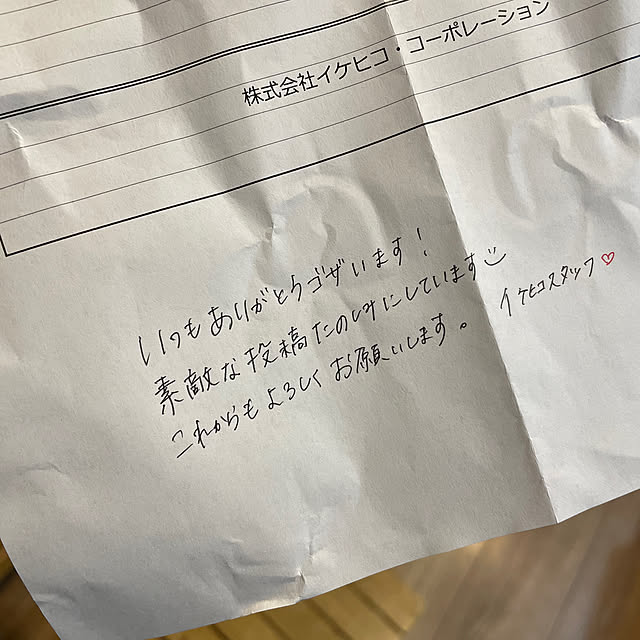 株式会社イケヒコ・コーポレーション
いつもありがとうゴザいます!
素敵な投稿たのしみにしています
これからもよろしくお願いします。
イケヒコスタッフ♡